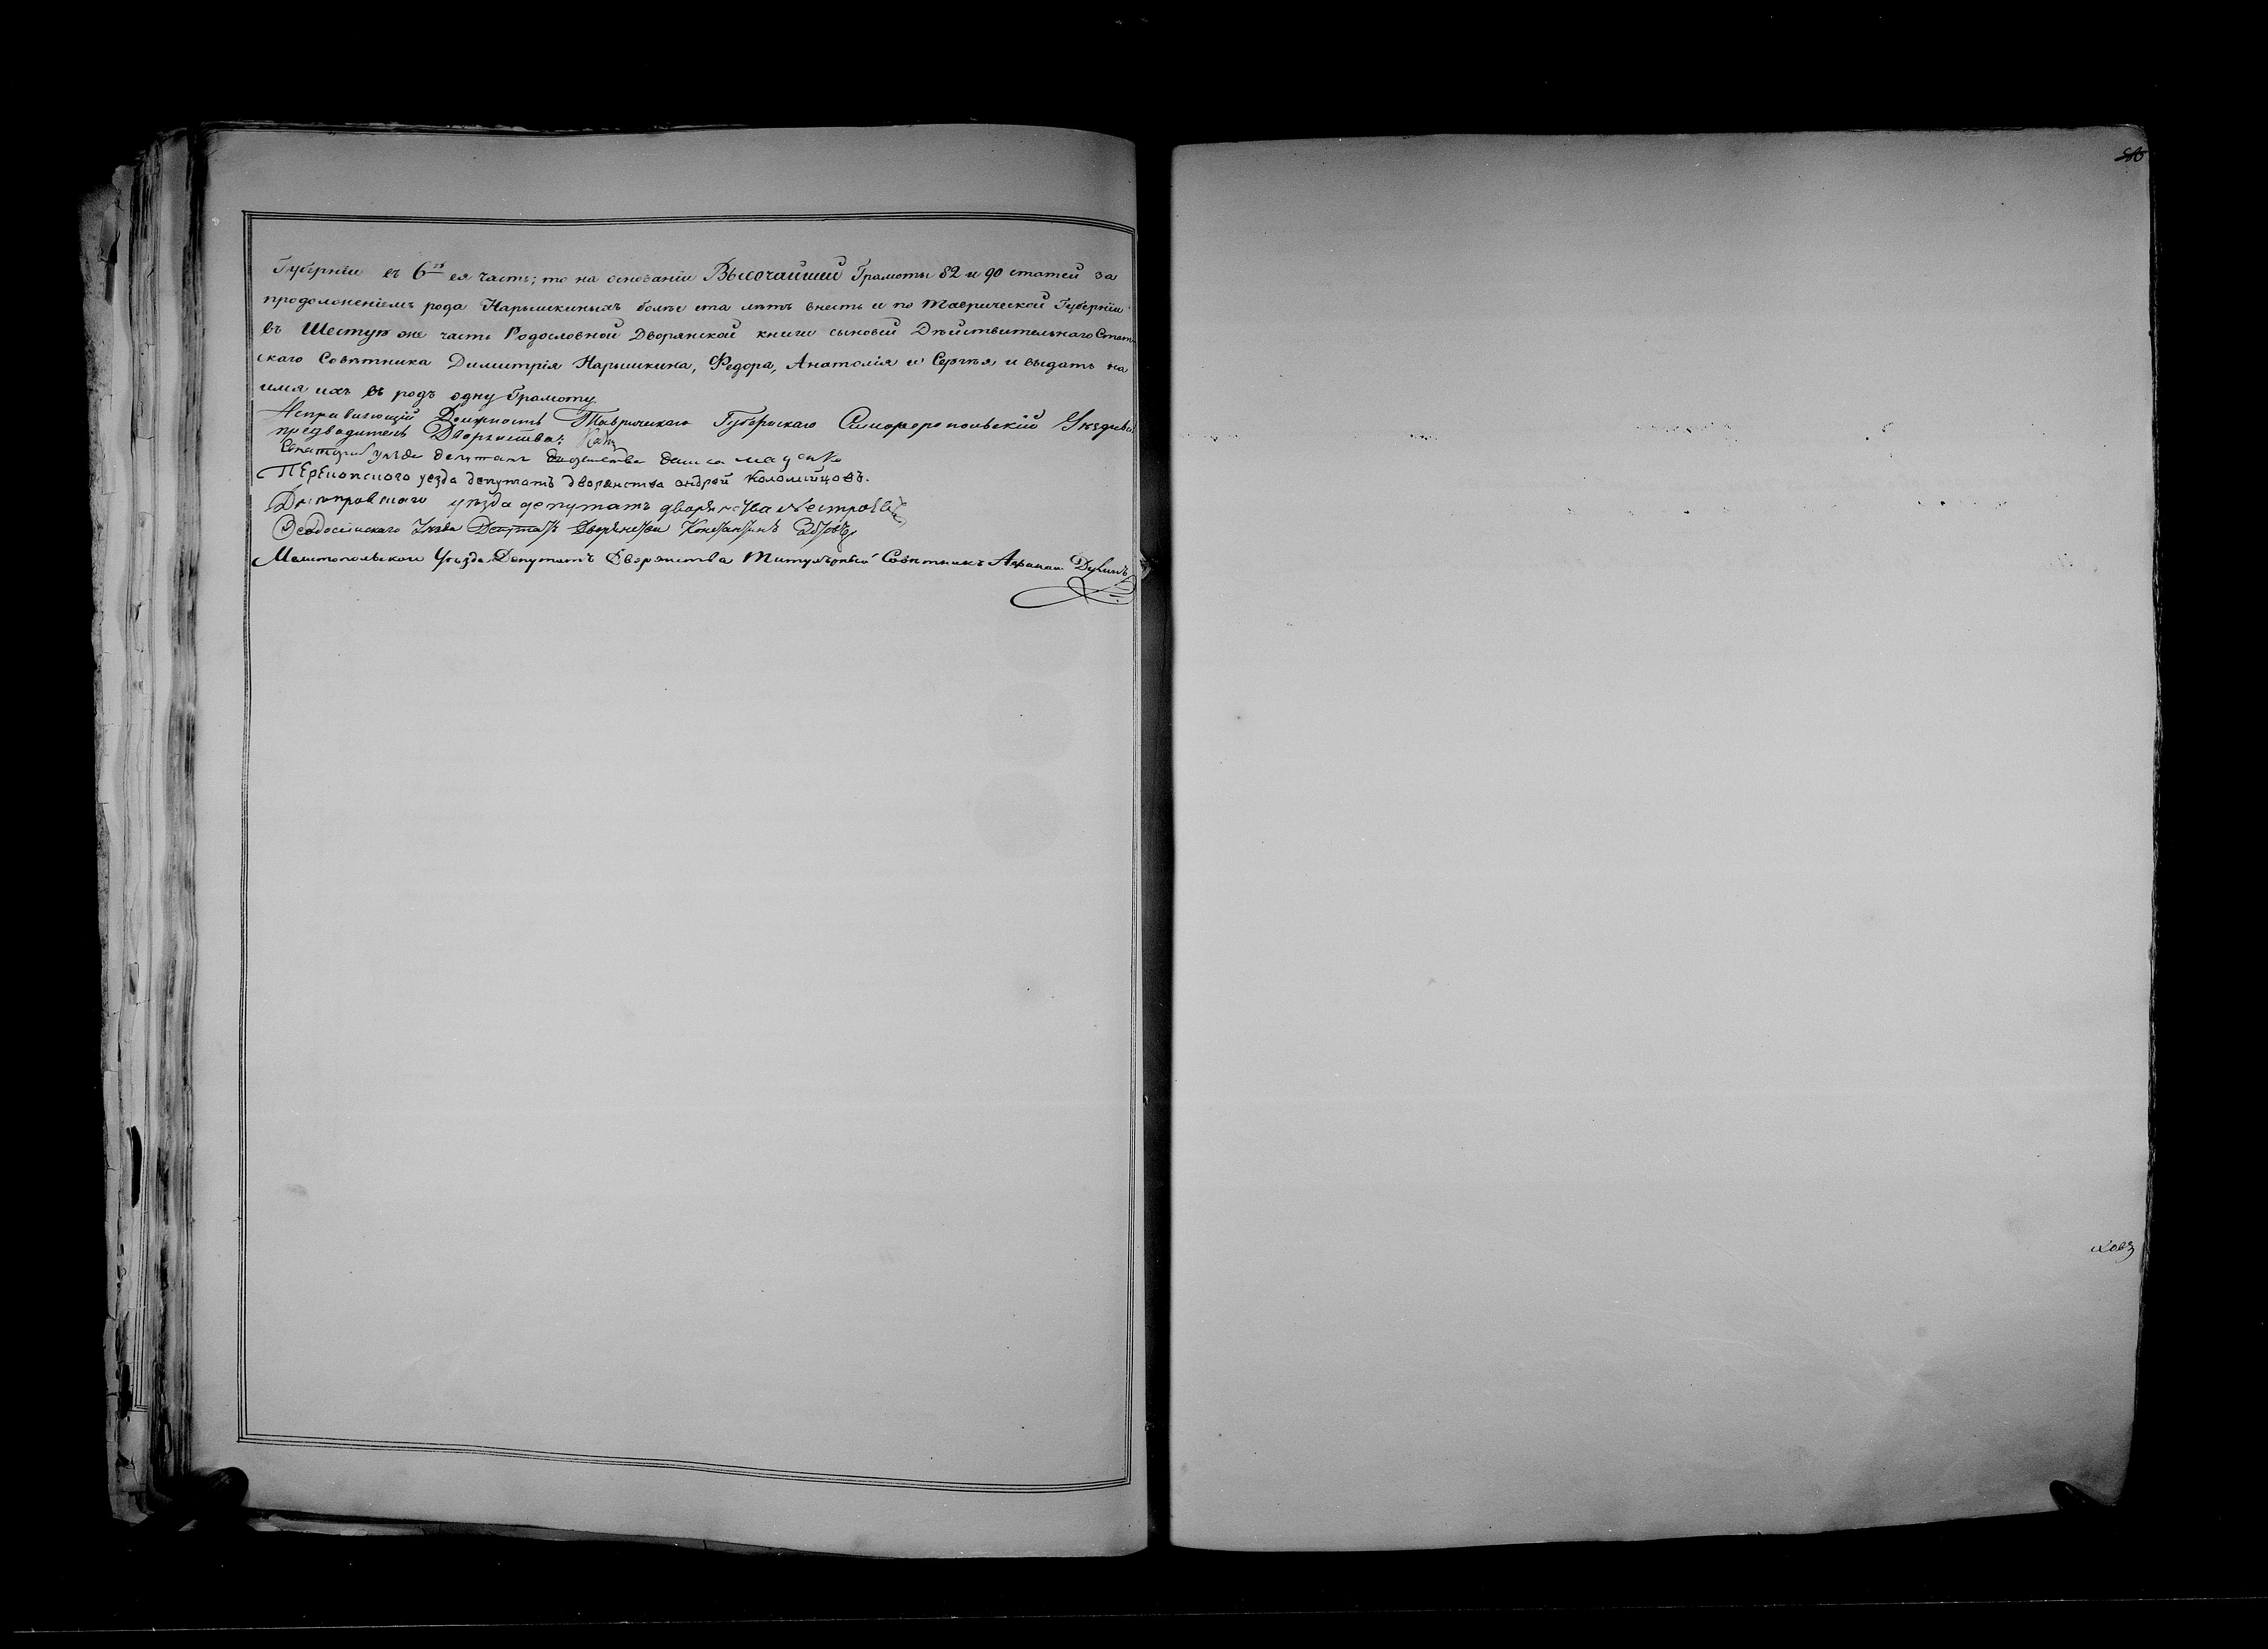 Губерніи въ 6ю ея часть; то на основаніи Высочайшей Грамоты 82 и 90 статей за
продолженіемъ рода Нарышкиныхъ болѣе ста лѣтъ внесть и по Таврической Губерніи
въ Шестую же часть Родословной Дворянской книги сыновей Дѣйствительнаго Стат-
скаго Совѣтника Димитрія Нарышкина, Федора, Анатолія и Сергѣя и выдать на
имя ихъ въ родъ одну Грамоту.
Исправляющій Должность Таврическаго Губернскаго Симферопольскій Уѣздный
предводитель Дворянства:
уѣзда депутатъ
Перекопского уезда депутатъ дворянства андрей Коломійцовъ.
Днѣпровскаго уѣзда депутатъ дворянства
Ѳеодосійскаго Уѣзда Депутатъ Дворянства Константинъ
Мелитопольского Уѣзда Депутатъ Дворянства Титулярный Совѣтникъ